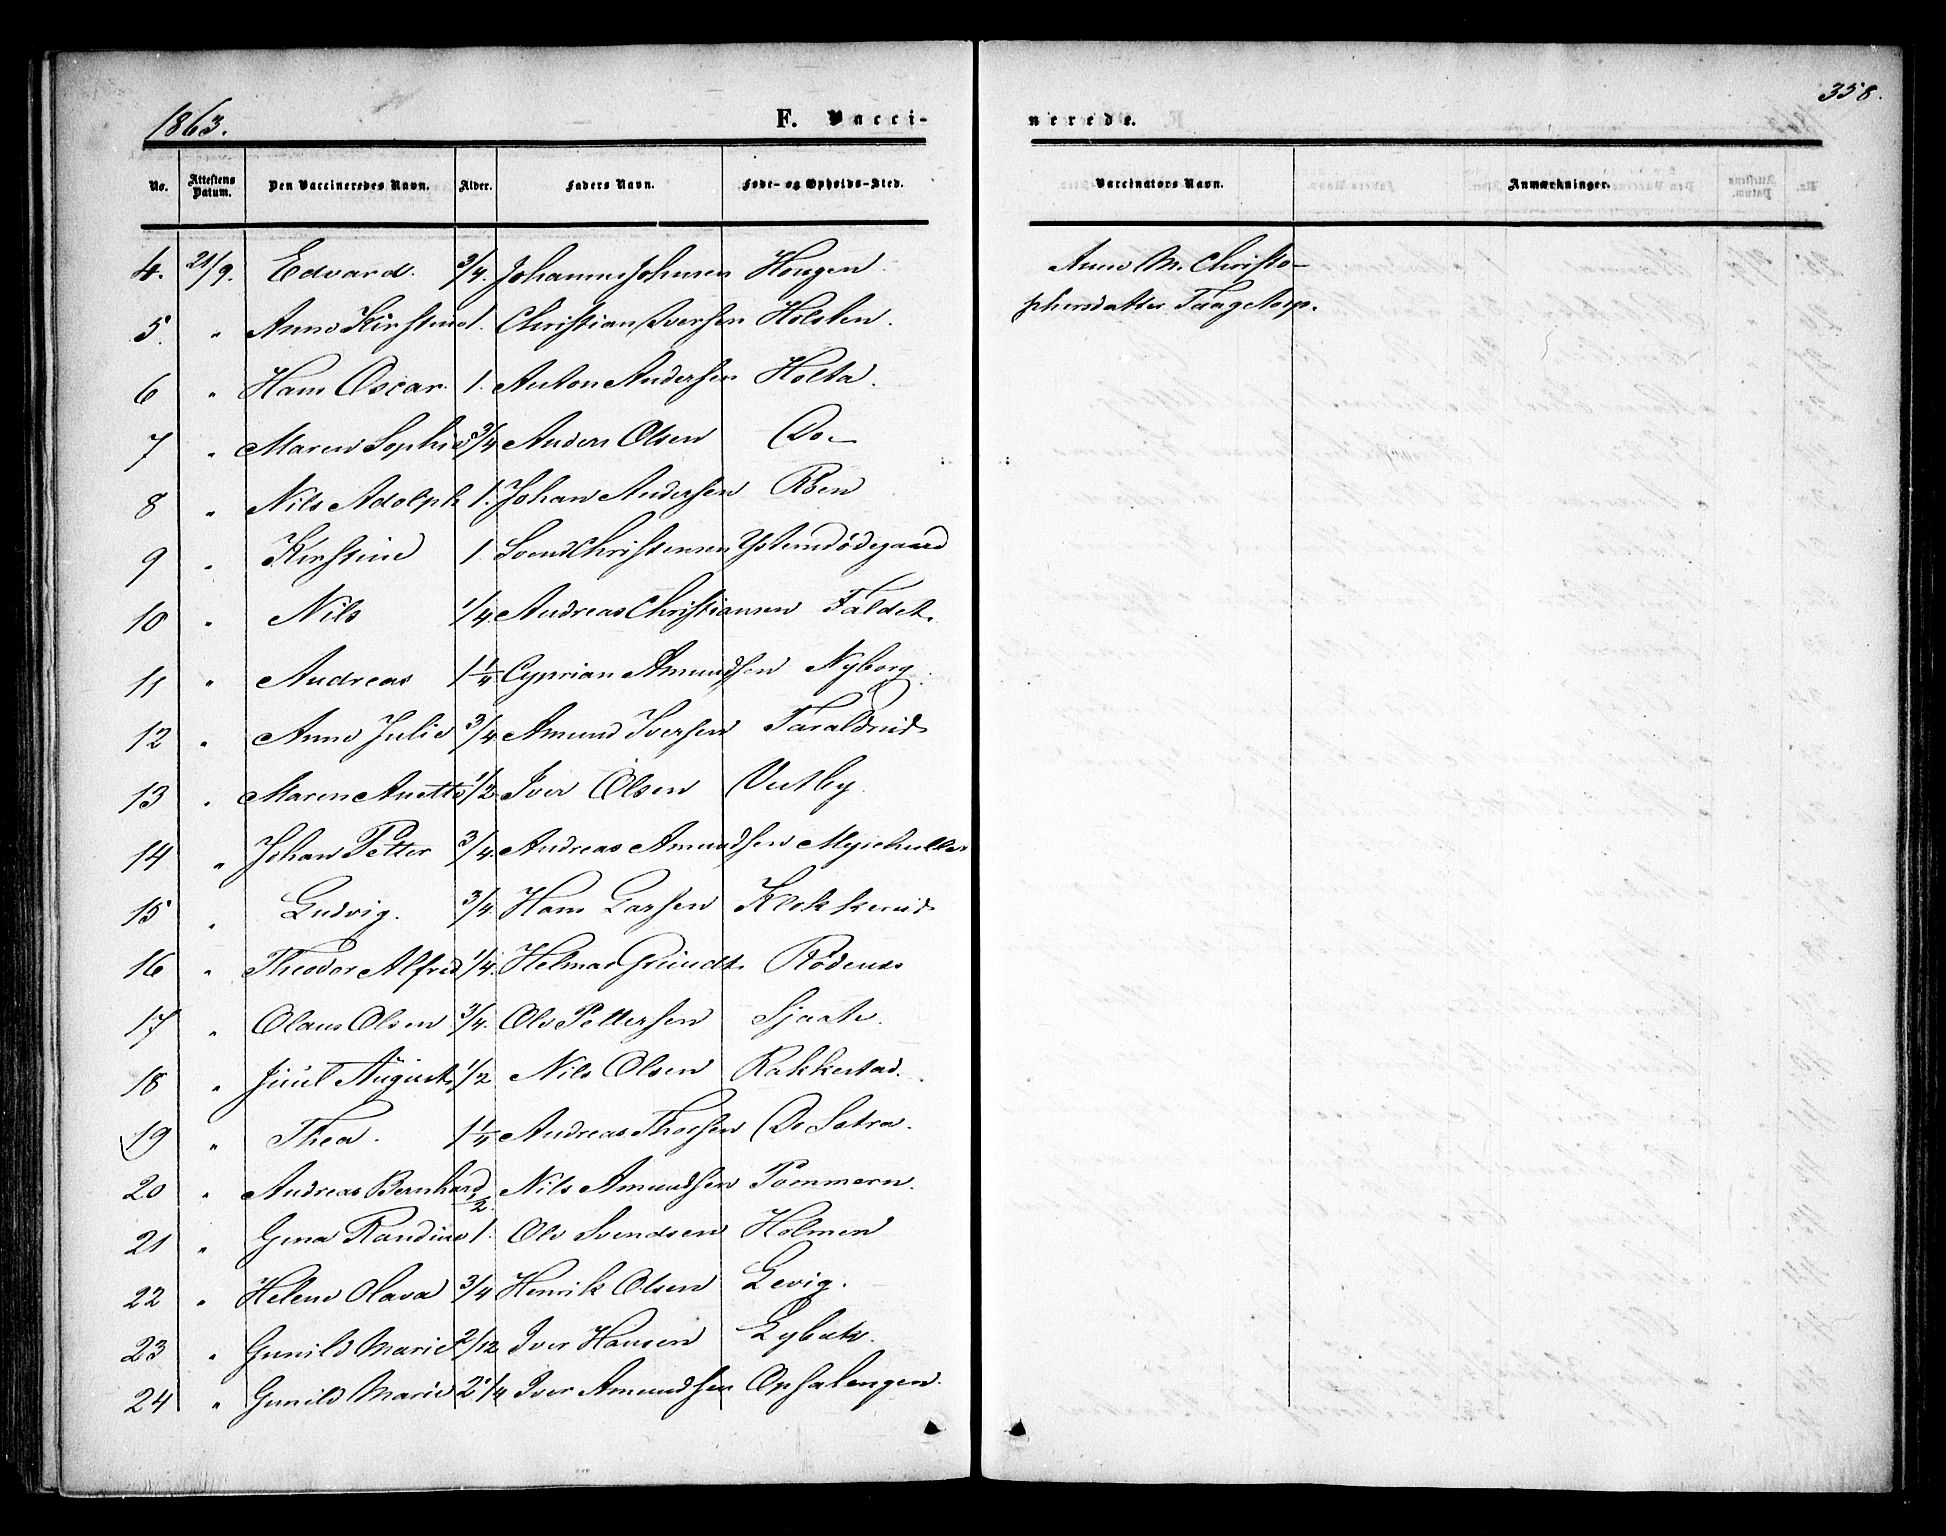 358.
1863. F. Vacci-nerede.
No. Attestens Datum. Den Vaccineredes Navn. Alder. Faders Navn. Føde- og Opholds-Sted. Vaccinators Navn. Anmærkninger.
4. 21/9. Edvard. 3/4. Johannes Johnsen Hougen. Anne M. Christo-
5. " Anne Kirstine 1. Christian Iversen Holsten. phersdatter Taagetorp.
6 " Hans Oscar. 1. Anton Andersen Holta.
7 " Maren Sophie 3/4 Anders Olsen Do-
8 " Nils Adolph 1. Johan Andersen Röen
9 " Kirstine 1. Svend Christensen Ystemdødegaard
10 " Nils 1/4. Andreas Christiansen Faldet.
11 " Andreas 1 1/4 Cyprian Amundsen Nyborg.
12 " Anne Julie 3/4 Amund Iversen Taraldrud
13 " Maren Anette 1/2 Iver Olsen Vestby.
14 " Johan Petter 3/4. Andreas Amundsen
15 " Ludvig. 3/4 Hans Larsen Klokkerud
16 " Theodor Alfred 1/4. Helmar Grundt. Rödenes
17 " Olaus Olsen 3/4. Ole Pettersen
18 " Juul August 1/2 Nils Olsen Rakkestad.
19 " Thea. 1 1/4 Andreas Thorsen Do Satra.
20 " Andreas Bernhard 1/2. Nils Amundsen Pommern.
21 " Gina Randine 1. Ole Svendsen Holmen
22 " Helene Olava 3/4 Henrik Olsen Levig.
23 " Gunild Marie 2/12 Iver Hansen
24 " Gunild Marie 2 1/4 Iver Amundsen Opsalengen.